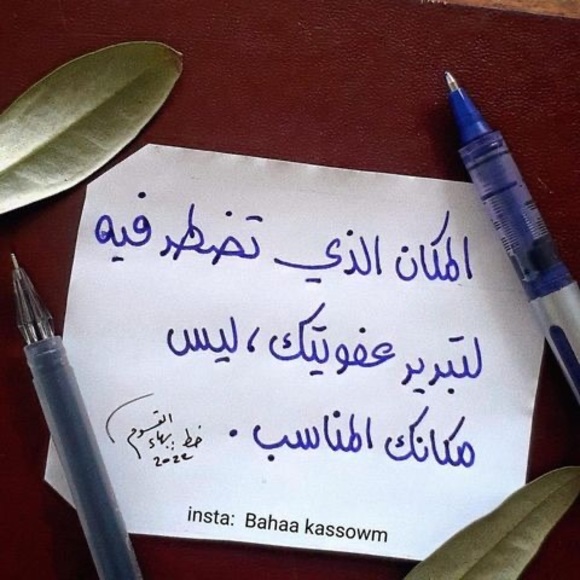 المكان الذي تضطر فيه
لتبرير عفويتك، ليس
مكانك المناسب.
خط: بهاء القسوم
2022
insta: Bahaa kassowm